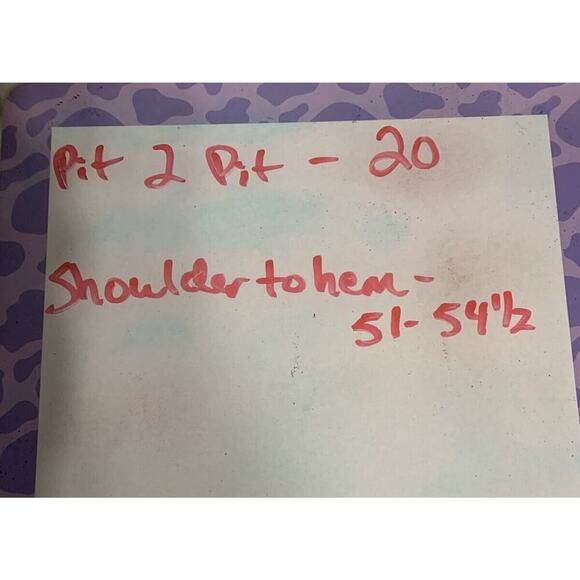 Pit 2 Pit - 20
Shoulder to hem -
51- 54 1/2